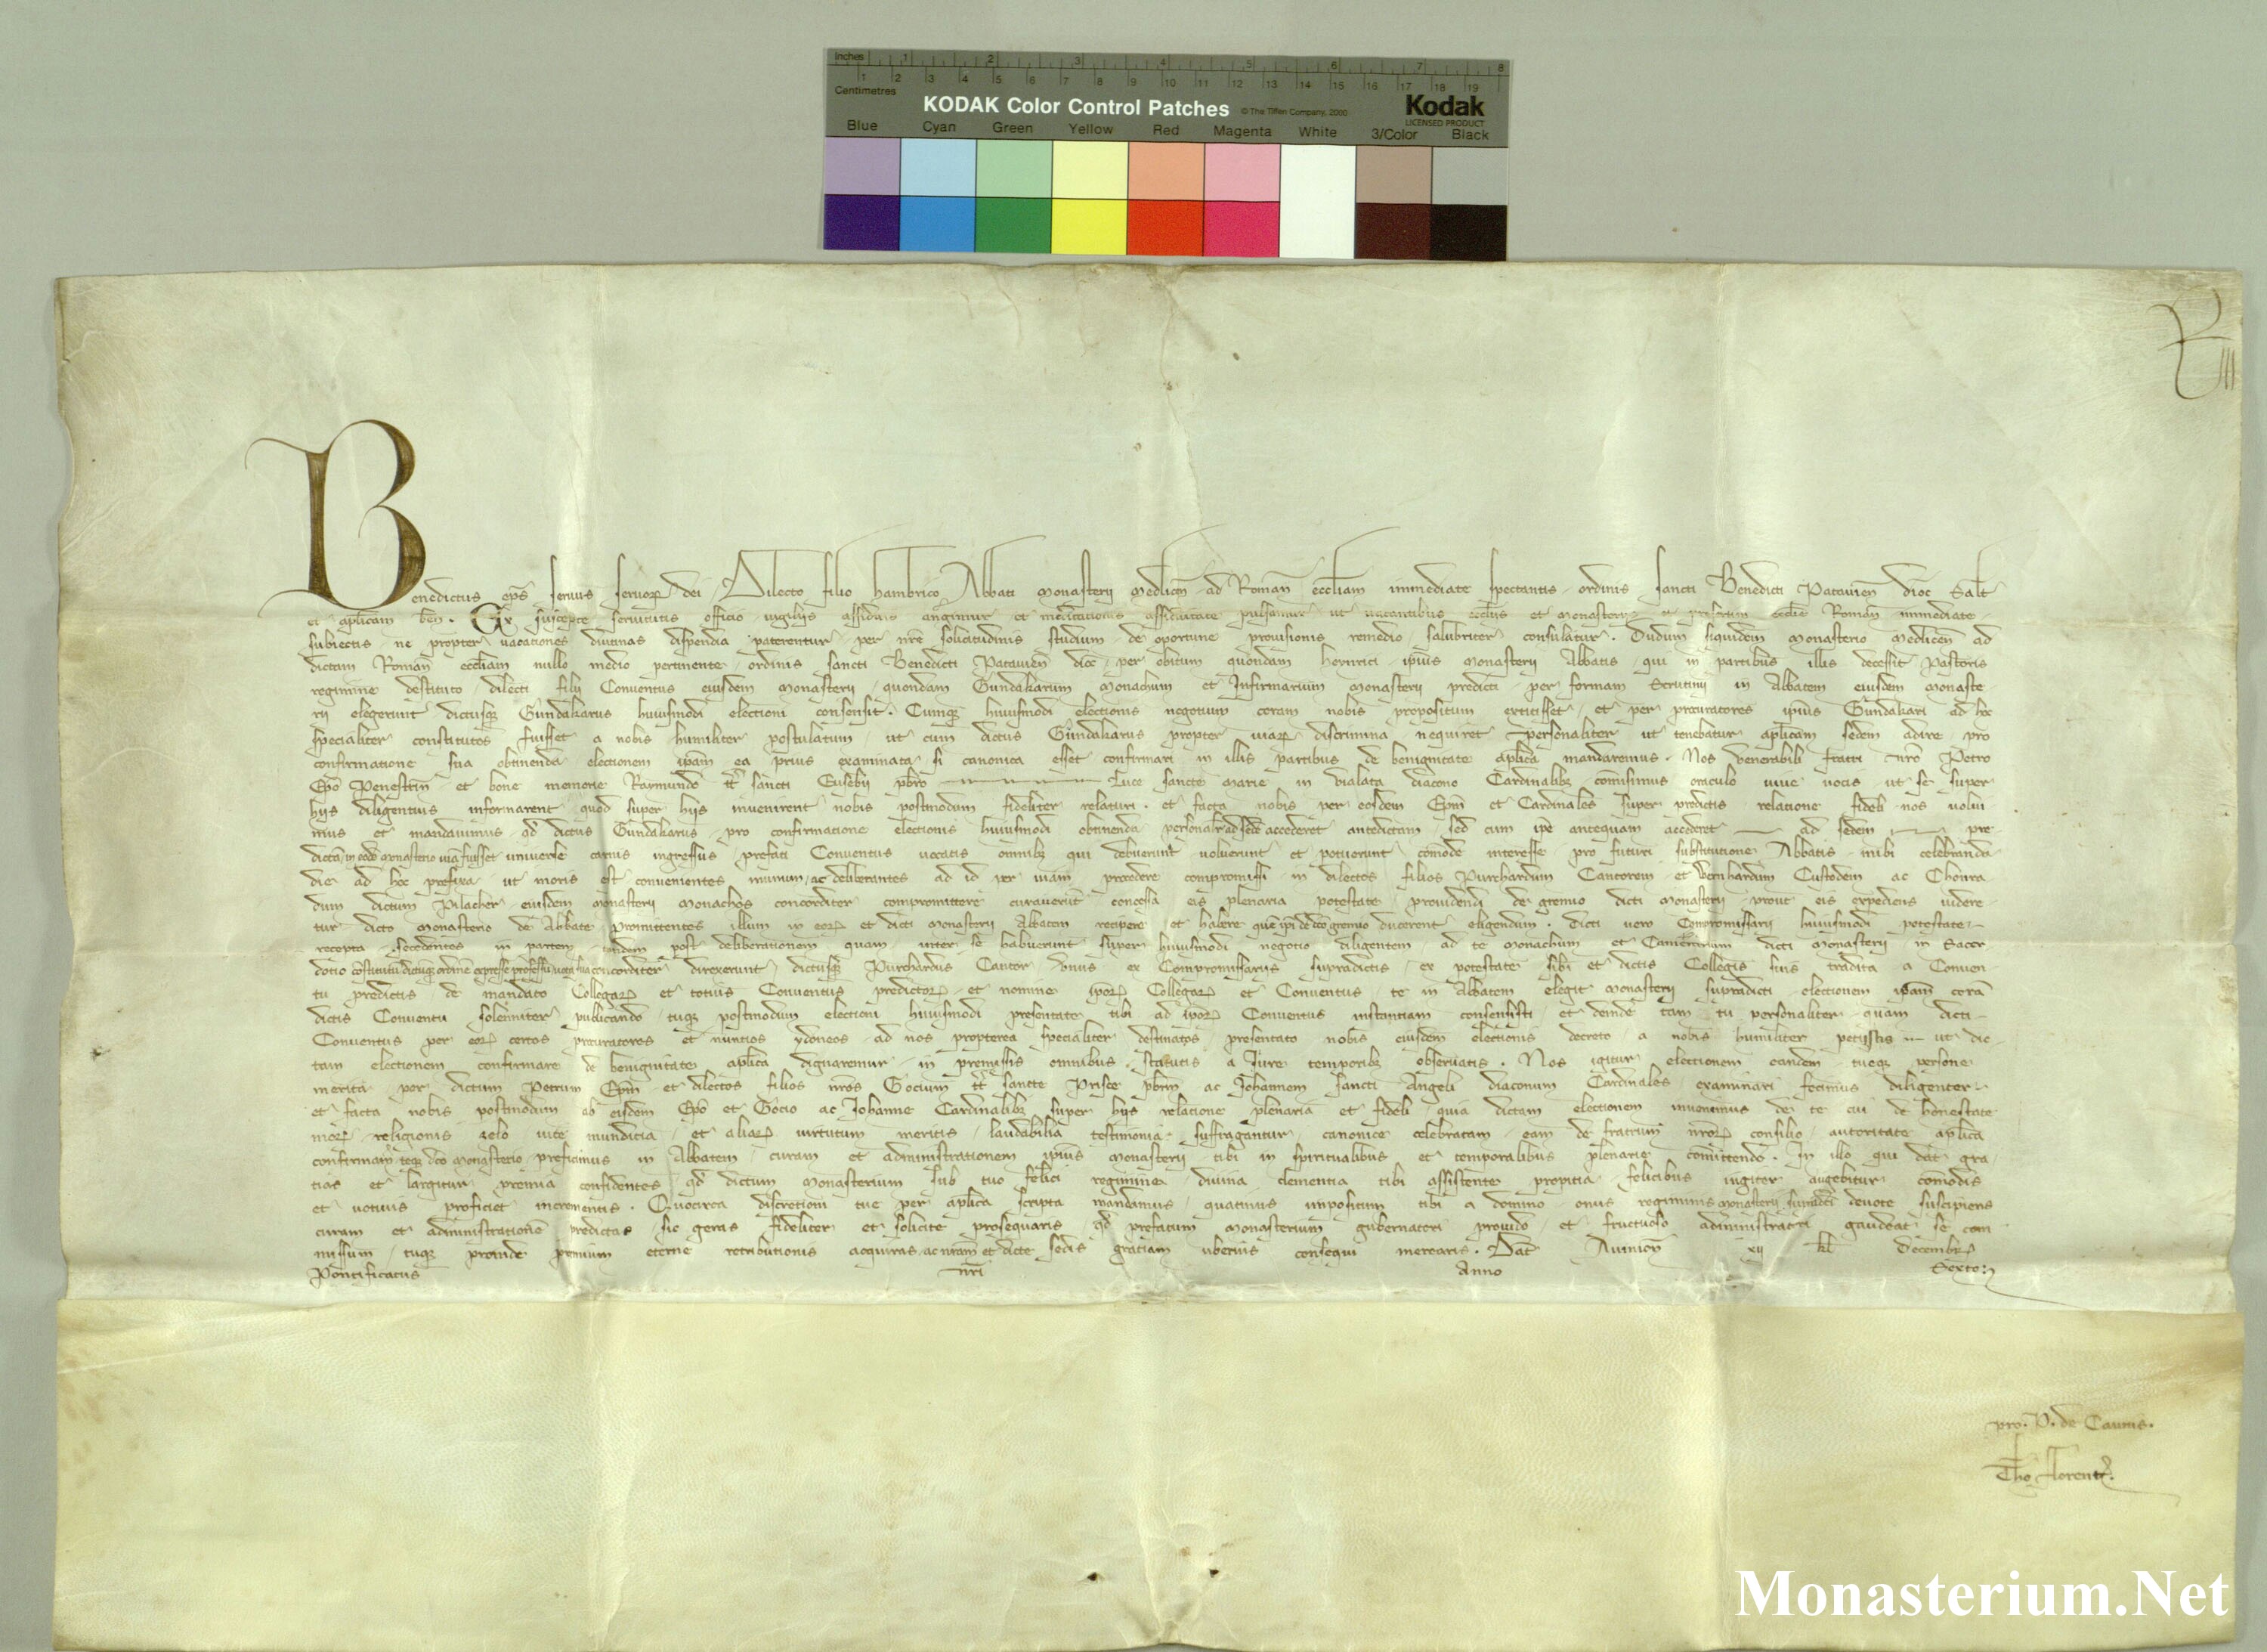 Inches 1 2 3 4 5 6 7 8
1 2 3 4 5 6 7 8 9 10 11 12 13 14 15 16 17 18 19
Centimetres
KODAK Color Control Patches © The Tiffen Company, 2000 Kodak
LICENSED PRODUCT
Blue Cyan Green Yellow Red Magenta White 3/Color Black
R
III
Benedictus ep̄s servus servoꝝ dei Dilecto filio Abbati Monasterij Medlicen̄ ad Roman̄ eccl̄iam immediate spectantis ordinis sancti Benedicti Patavien̄ dioc̄ Salt̄
et apl̄icam ben̄. Ex suscepte servitutis officio vigiliis assiduis angimur et meditationis assiduitate pulsamur ut vacantibus eccl̄iis et Monasteriis Roman̄ immediate
subiectis ne propter vacationes diutinas dispendia paterentur per nr̄e solicitudinis studium de oportune provisionis remedio salubriter consulatur. Dudum siquidem Monasterio Medlicen̄ ad
dictam Roman̄ eccl̄iam nullo medio pertinente ordinis sancti Benedicti Patavien̄ dioc̄ per obitum quondam ip̄ius Monasterij Abbatis qui in partibus illis decessit Pastoris
regimine destituto dilecti filij Conventus eiusdem Monasterij quondam Gundakarum Monachum et Infirmarium Monasterij predicti per formam Scrutinij in Abbatem eiusdem Monaste
rij elegerunt dictusqꝫ Gundakarus huiusmodi electioni consensit. Cumqꝫ huiusmodi electionis negotium coram nobis propositum extitisset et per procuratores ip̄ius Gundakari ad hoc
specialiter constitutos fuisset a nobis humiliter postulatum ut cum dictus Gundakarus propter viaꝝ discrimina nequiret personaliter ut tenebatur apl̄icam sedem adire pro
confirmatione sua obtinenda electionem ip̄am ea prius examinata si canonica esset confirmari in illis partibus de benignitate apl̄ica mandaremus. Nos venerabili fratri nr̄o Petro
Ep̄o Penestrin̄ et bone memorie Raimundo tt̄ sancti Eusebij pbr̄o Luce sancte Marie in vialata diacono Cardinalibꝫ commisimus oraculo vive vocis ut se super
hijs diligentius informarent quod super hijs invenirent nobis postmodum fideliter relaturi. et facta nobis per eosdem Ep̄m et Cardinales super predictis relatione fideli nos volui
mus et mandavimus qd̄ dictus Gundakarus pro confirmatione electionis huiusmodi obtinenda personalr̄ ad sedē accederet antedictam sed cum ip̄e antequam accederet ad sedem pre
dictā in eodē Monasterio viā fuisset universe carnis ingressus prefati Conventus vocatis omnibꝫ qui debuerunt voluerunt et potuerunt comode interesse pro futuri substitutione Abbatis inibi celebranda
die ad hoc prefixa ut moris est convenientes in unum ac deliberantes ad id per viam procedere compromissi in dilectos filios Purchardum Cantorem et Bernhardum Custodem ac Chonra
dum dictum Pilacher eiusdem Monasterij Monachos concorditer compromittere curaverūt concessa eis plenaria potestate providendi de gremio dicti Monasterij prout eis expediens videre
tur dicto Monasterio de Abbate promittentes illum in eoꝝ et dicti Monasterij Abbatem recipere et habere quē ip̄i de dc̄o gremio ducerent eligendum. dicti vero Compromissarij huiusmodi potestate
recepta secedentes in partem tandem post deliberationem quam inter se habuerunt super huiusmodi negotio diligentem ad te Monachum et dicti Monasterij in Sacer
dotio cōstitutū concorditer direxerunt dictusqꝫ Purchardus Cantor unus ex Compromissariis supradictis ex potestate sibi et dictis Collegis suis tradita a Conven
tu predictis de mandato Collegaꝝ et totius Conventus predictoꝝ et nomine ip̄oꝝ Collegaꝝ et Conventus te in Abbatem elegit Monasterij supradicti electionem ip̄am corā
dictis Conventu solenniter publicando tuqꝫ postmodum electioni huiusmodi presentate tibi ad ip̄oꝝ Conventus instantiam consensisti et deinde tam tu personaliter quam dicti
Conventus per eoꝝ certos procuratores et nuntios ydoneos ad nos propterea specialiter destinatos presentato nobis eiusdem electionis decreto a nobis humiliter petistis ut dic
tam electionem confirmare de benignitate apl̄ica dignaremur in premissis omnibus statutis a Iure temporibꝫ observatis. Nos igitur electionem eandem tueqꝫ persone
merita per dictum Petrum Ep̄m et dilectos filios nr̄os Gocium tt̄ sancte Prisce pbr̄m ac Iohannem sancti Angeli diaconum Cardinales examinari fecimus diligenter
et facta nobis postmodum ab eisdem Ep̄o et Gocio ac Iohanne Cardinalibꝫ super hijs relatione plenaria et fideli quia dictam electionem invenimus de te cui de honestate
moꝝ religionis zelo vite munditia et aliaꝝ virtutum meritis laudabilia testimonia suffragantur canonice celebratam eam de fratrum nr̄oꝝ consilio autoritate apl̄ica
confirmam̄ teqꝫ dc̄o Monasterio prefícimus in Abbatem curam et administrationem ip̄ius Monasterij tibi in spiritualibus et temporalibus plenarie comittendo. In illo qui dat gra
tias et largitur premia confidentes qd̄ dictum Monasterium sub tuo felici regimine divina clementia tibi assistente propitia felicibus iugiter augebitur comodis
et votivis proficiet incrementis. Quocirca discretioni tue per apl̄ica scripta mandamus quatinus impositum tibi a domino onus regiminis Monasterij supradc̄i devote suscipiens
curam et administrationē predictas sic geras fideliter et solicite prosequaris qd̄ prefatum Monasterium gubernatori provido et fructuoso administratori gaudeat se com
missum tuqꝫ proinde premium eterne retributionis acquiras ac nr̄am et dicte sedis gratiam uberius consequi merearis. Dat̄ Avinion̄ xij kl̄ Decembꝝ
Pontificatus nr̄i Anno Sexto
pro. P. de Caunis.
Tho. florentꝫ.
Monasterium.Net